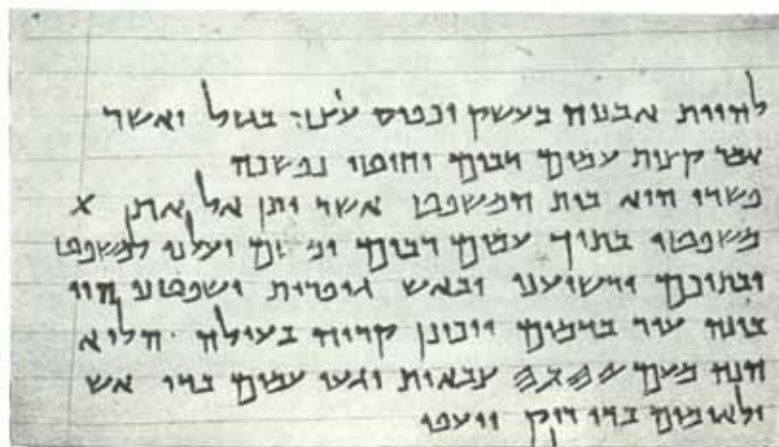 להיות אבניה בעשק וכפיס עיצה בגזל ואשר
אמר קצות עמים רבים וחוטי נפשכה
פשרו הוא בית המשפט אשר יתן אל את X
משפטו בתוך עמים רבים ומשם יעלנו למשפט
ובתוכם ירשיענו ובאש גופרית ישפטנו הוי
בונה עיר בדמים ויכונן קריה בעולה הלוא
הנה מעם 𐤉𐤄𐤅𐤄 צבאות יגעו עמים בדי אש
ולאומים בדי ריק ייעפו